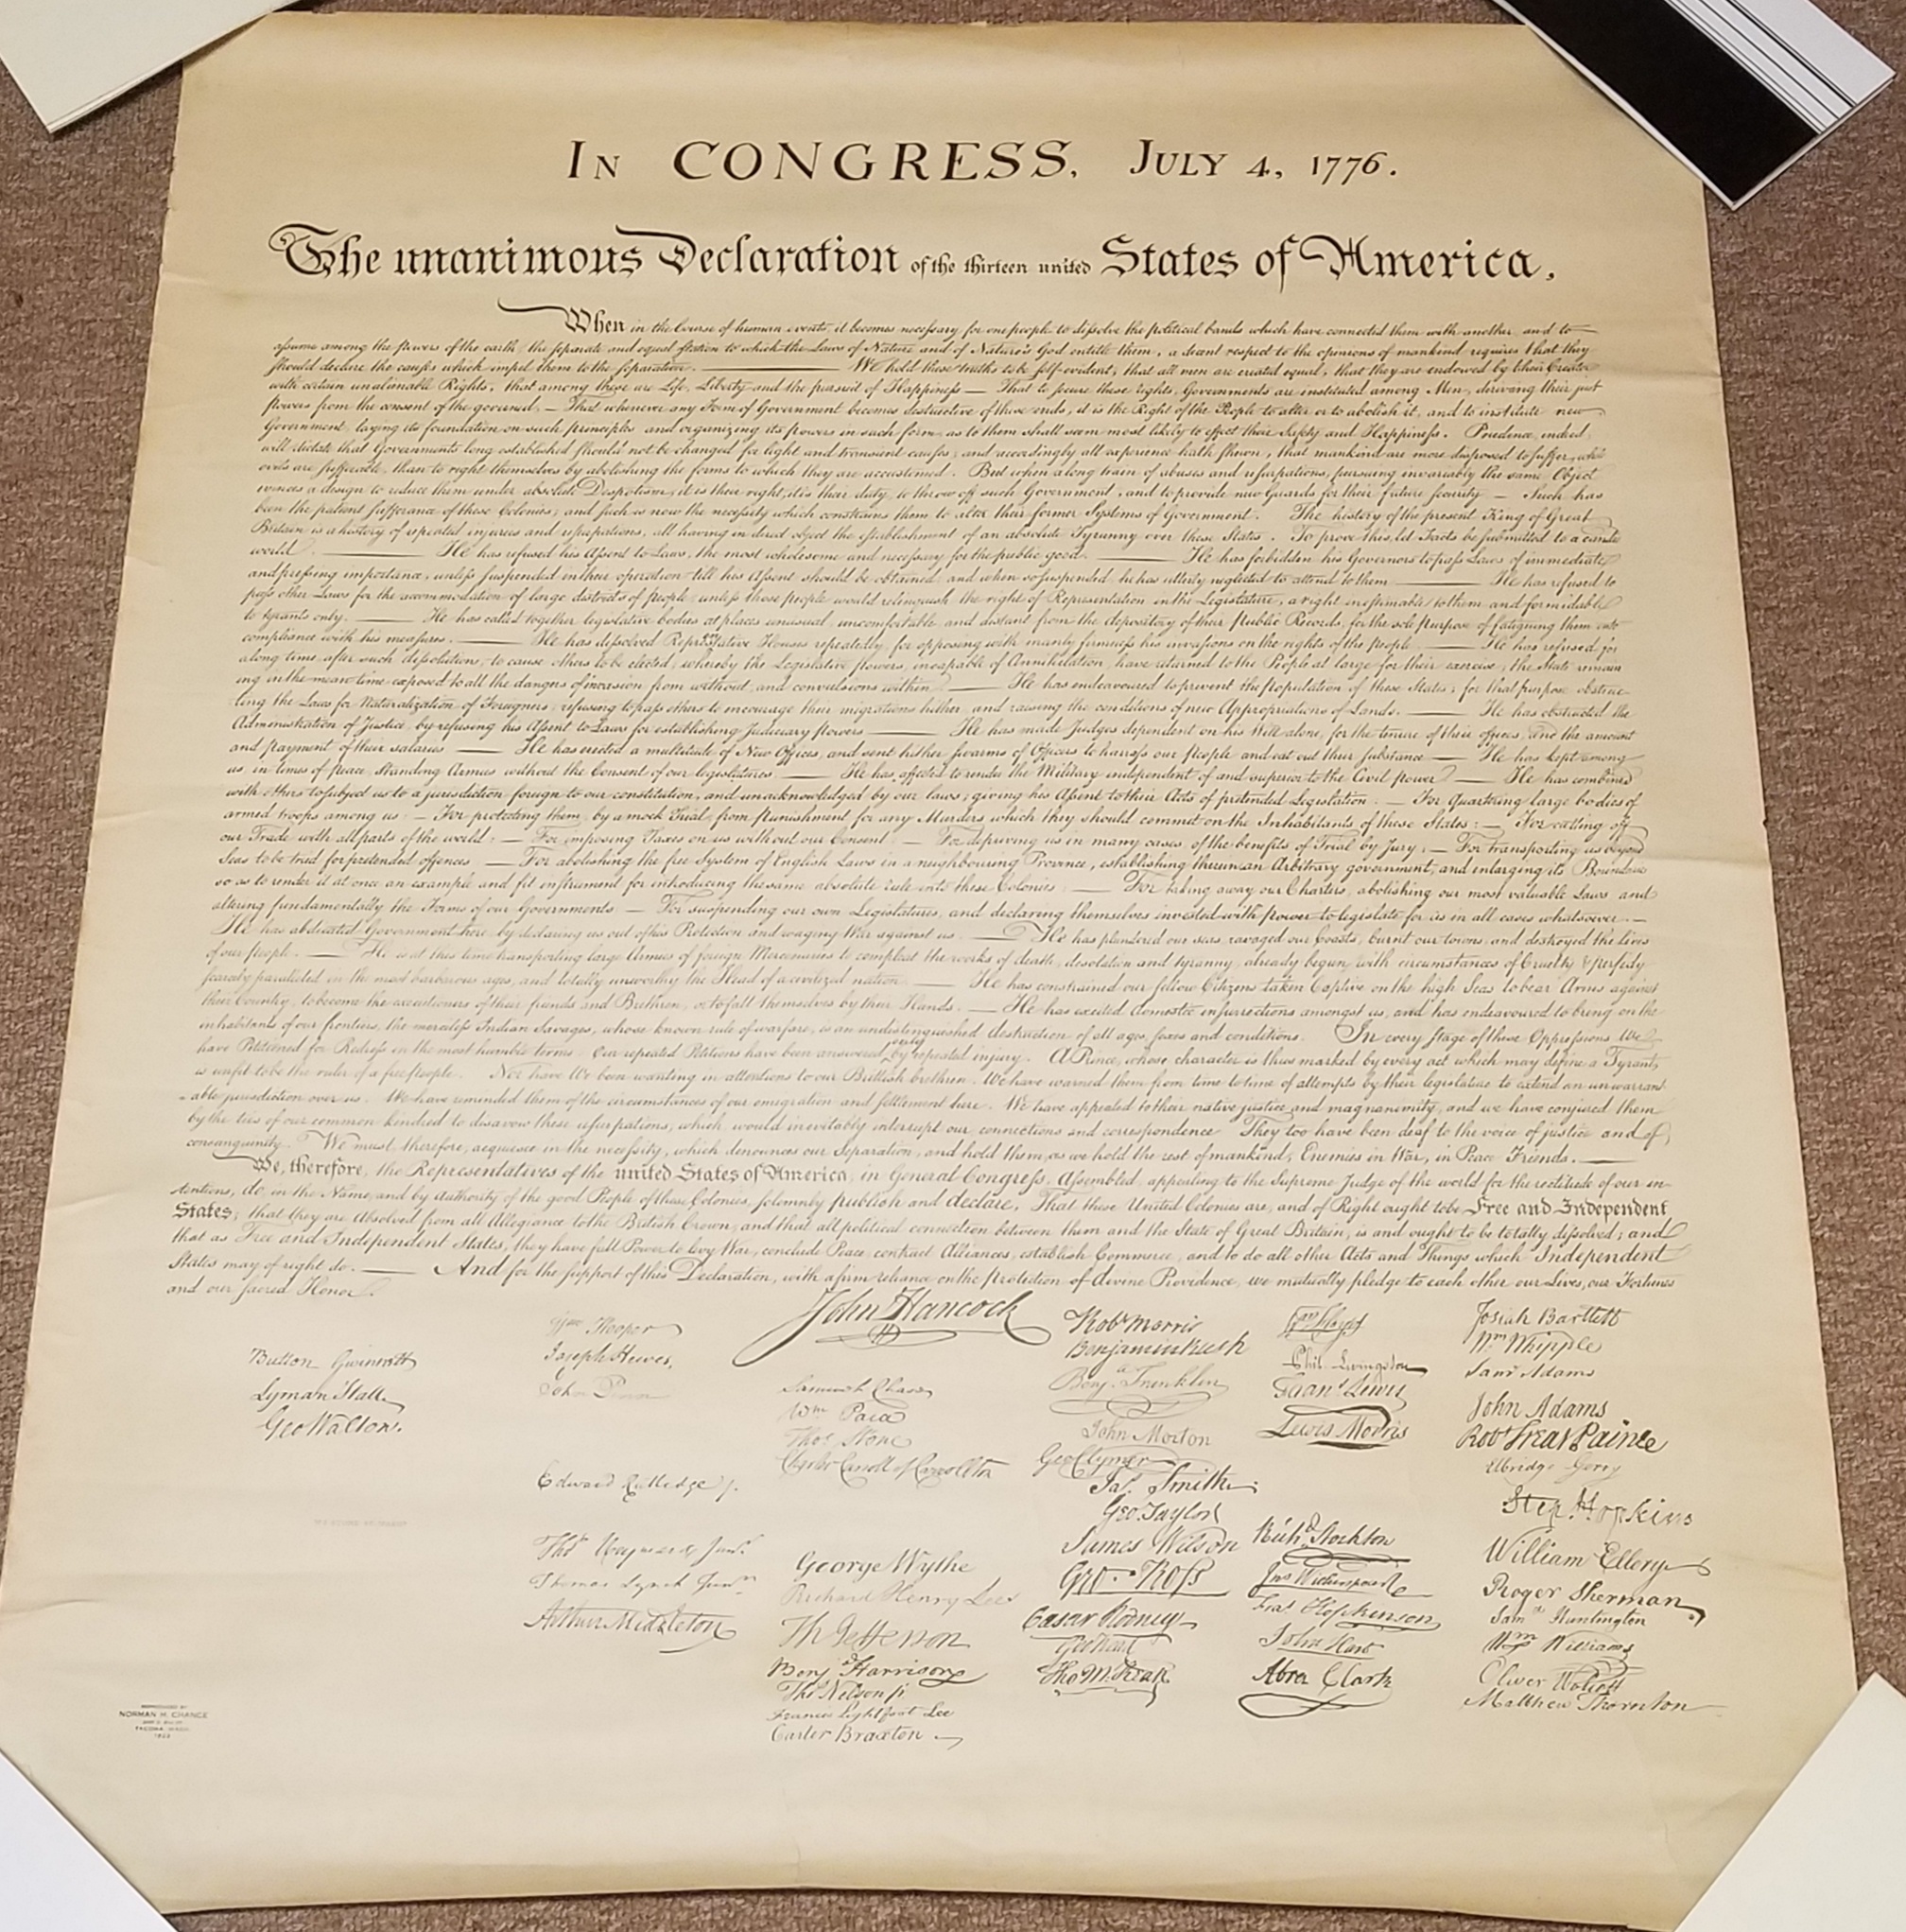 In CONGRESS, July 4, 1776.
The unanimous Declaration of the thirteen united States of America,
When in the Course of human events, it becomes necessary for one people to dissolve the political bands which have connected them with another, and to
assume among the powers of the earth, the separate and equal station to which the Laws of Nature and of Nature's God entitle them, a decent respect to the opinions of mankind requires that they
should declare the causes which impel them to the separation. — We hold these truths to be self-evident, that all men are created equal, that they are endowed by their Creator
with certain unalienable Rights, that among these are Life, Liberty and the pursuit of Happiness — That to secure these rights, Governments are instituted among Men, deriving their just
powers from the consent of the governed, — That whenever any Form of Government becomes destructive of these ends, it is the Right of the People to alter or to abolish it, and to institute new
Government, laying its foundation on such principles and organizing its powers in such form, as to them shall seem most likely to effect their Safety and Happiness. Prudence, indeed,
will dictate that Governments long established should not be changed for light and transient causes; and accordingly all experience hath shewn, that mankind are more disposed to suffer, while
evils are sufferable, than to right themselves by abolishing the forms to which they are accustomed. But when a long train of abuses and usurpations, pursuing invariably the same Object
evinces a design to reduce them under absolute Despotism, it is their right, it is their duty, to throw off such Government, and to provide new Guards for their future security — Such has
been the patient sufferance of these Colonies; and such is now the necessity which constrains them to alter their former Systems of Government. The history of the present King of Great
Britain is a history of repeated injuries and usurpations, all having in direct object the establishment of an absolute Tyranny over these States. To prove this, let Facts be submitted to a candid
world. — He has refused his Assent to Laws, the most wholesome and necessary for the public good. — He has forbidden his Governors to pass Laws of immediate
and pressing importance, unless suspended in their operation till his Assent should be obtained; and when so suspended, he has utterly neglected to attend to them — He has refused to
pass other Laws for the accommodation of large districts of people, unless those people would relinquish the right of Representation in the Legislature, a right inestimable to them and formidable
to tyrants only. — He has called together legislative bodies at places unusual, uncomfortable, and distant from the depository of their Public Records, for the sole purpose of fatiguing them into
compliance with his measures. — He has dissolved Representative Houses repeatedly, for opposing with manly firmness his invasions on the rights of the people — He has refused for
a long time, after such dissolutions, to cause others to be elected; whereby the Legislative powers, incapable of Annihilation, have returned to the People at large for their exercise; the State remain
ing in the mean time exposed to all the dangers of invasion from without, and convulsions within — He has endeavoured to prevent the population of these States; for that purpose obstruc-
ting the Laws for Naturalization of Foreigners; refusing to pass others to encourage their migrations hither, and raising the conditions of new Appropriations of Lands. — He has obstructed the
Administration of Justice, by refusing his Assent to Laws for establishing Judiciary powers — He has made Judges dependent on his Will alone, for the tenure of their offices, and the amount
and payment of their salaries — He has erected a multitude of New Offices, and sent hither swarms of Officers to harrass our people and eat out their substance — He has kept among
us, in times of peace, Standing Armies without the Consent of our legislatures — He has affected to render the Military independent of and superior to the Civil power — He has combined
with others to subject us to a jurisdiction foreign to our constitution, and unacknowledged by our laws; giving his Assent to their Acts of pretended Legislation. — For Quartering large bodies of
armed troops among us: — For protecting them, by a mock Trial, from punishment for any Murders which they should commit on the Inhabitants of these States: — For cutting off
our Trade with all parts of the world: — For imposing Taxes on us without our Consent: — For depriving us in many cases, of the benefits of Trial by Jury: — For transporting us beyond
Seas to be tried for pretended offences — For abolishing the free System of English Laws in a neighbouring Province, establishing therein an Arbitrary government, and enlarging its Boundaries
so as to render it at once an example and fit instrument for introducing the same absolute rule into these Colonies: — For taking away our Charters, abolishing our most valuable Laws and
altering fundamentally the Forms of our Governments — For suspending our own Legislatures, and declaring themselves invested with power to legislate for us in all cases whatsoever. —
He has abdicated Government here, by declaring us out of his Protection and waging War against us. — He has plundered our seas, ravaged our Coasts, burnt our towns, and destroyed the lives
of our people. — He is at this time transporting large Armies of foreign Mercenaries to compleat the works of death, desolation and tyranny, already begun with circumstances of Cruelty & perfidy
scarcely paralleled in the most barbarous ages, and totally unworthy the Head of a civilized nation. — He has constrained our fellow Citizens taken Captive on the high Seas to bear Arms against
their Country, to become the executioners of their friends and Brethren, or to fall themselves by their Hands. — He has excited domestic insurrections amongst us, and has endeavoured to bring on the
inhabitants of our frontiers, the merciless Indian Savages, whose known rule of warfare, is an undistinguished destruction of all ages, sexes and conditions. In every stage of these Oppressions We
have Petitioned for Redress in the most humble terms: Our repeated Petitions have been answered only by repeated injury. A Prince, whose character is thus marked by every act which may define a Tyrant,
is unfit to be the ruler of a free people. Nor have We been wanting in attentions to our Brittish brethren. We have warned them from time to time of attempts by their legislature to extend an unwarrant
-able jurisdiction over us. We have reminded them of the circumstances of our emigration and settlement here. We have appealed to their native justice and magnanimity, and we have conjured them
by the ties of our common kindred to disavow these usurpations, which would inevitably interrupt our connections and correspondence They too have been deaf to the voice of justice and of
consanguinity. We must, therefore, acquiesce in the necessity, which denounces our Separation, and hold them, as we hold the rest of mankind, Enemies in War, in Peace Friends. —
We, therefore, the Representatives of the united States of America, in General Congress, Assembled, appealing to the Supreme Judge of the world for the rectitude of our in-
tentions, do, in the Name, and by Authority of the good People of these Colonies, solemnly publish and declare, That these United Colonies are, and of Right ought to be Free and Independent
States; that they are Absolved from all Allegiance to the British Crown, and that all political connection between them and the State of Great Britain, is and ought to be totally dissolved; and
that as Free and Independent States, they have full Power to levy War, conclude Peace, contract Alliances, establish Commerce, and to do all other Acts and Things which Independent
States may of right do. — And for the support of this Declaration, with a firm reliance on the protection of divine Providence, we mutually pledge to each other our Lives, our Fortunes
and our sacred Honor.
Button Gwinnett
Lyman Hall
Geo Walton.
Wm Hooper
Joseph Hewes,
John Penn
Edward Rutledge
Thos Heyward Junr
Thomas Lynch Junr
Arthur Middleton
John Hancock
Samuel Chase
Wm Paca
Thos Stone
Charles Carroll of Carrollton
George Wythe
Richard Henry Lee
Th Jefferson
Benj Harrison
Thos Nelson jr
Francis Lightfoot Lee
Carter Braxton
Robt Morris
Benjamin Rush
Benja Franklin
John Morton
Geo Clymer
Jas. Smith
Geo. Taylor
James Wilson
Geo. Ross
Caesar Rodney
Geo Read
Tho M:Kean
Wm Floyd
Phil. Livingston
Frans Lewis
Lewis Morris
Richd Stockton
Jno Witherspoon
Fras Hopkinson
John Hart
Abra Clark
Josiah Bartlett
Wm Whipple
Saml Adams
John Adams
Robt Treat Paine
Elbridge Gerry
Step. Hopkins
William Ellery
Roger Sherman
Saml Huntington
Wm Williams
Oliver Wolcott
Matthew Thornton
REPRODUCED BY
NORMAN H. CHANCE
TACOMA, WASH.